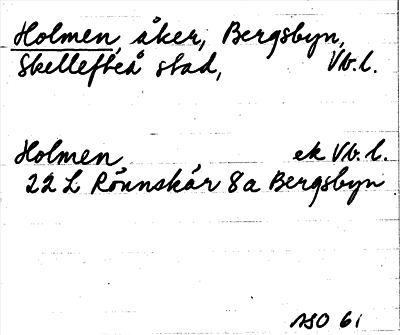 Holmen, åker, Bergsbyn,
Skellefteå stad, Vb.l.
Holmen ek Vb.l.
22 L Rönnskär 8a Bergsbyn
NSO 61